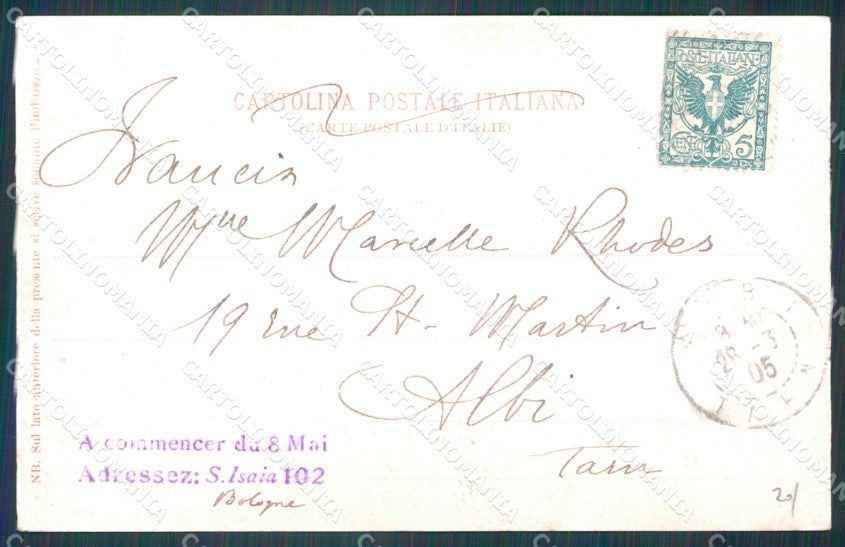 CARTOLINA POSTALE ITALIANA
(CARTE POSTALE D'ITALIE)
POSTE ITALIANE
CENT. 5
Francia
Mlle Marcelle Rhodes
19 rue St-Martin
Albi
Tarn
ALBI
28-3
05
TARN
A commencer du 8 Mai
Adressez: S. Isaia 102
Bologne
20/
NB. Sul lato anteriore della presente si scrive soltanto l'indirizzo.
CARTOLINOMANIA